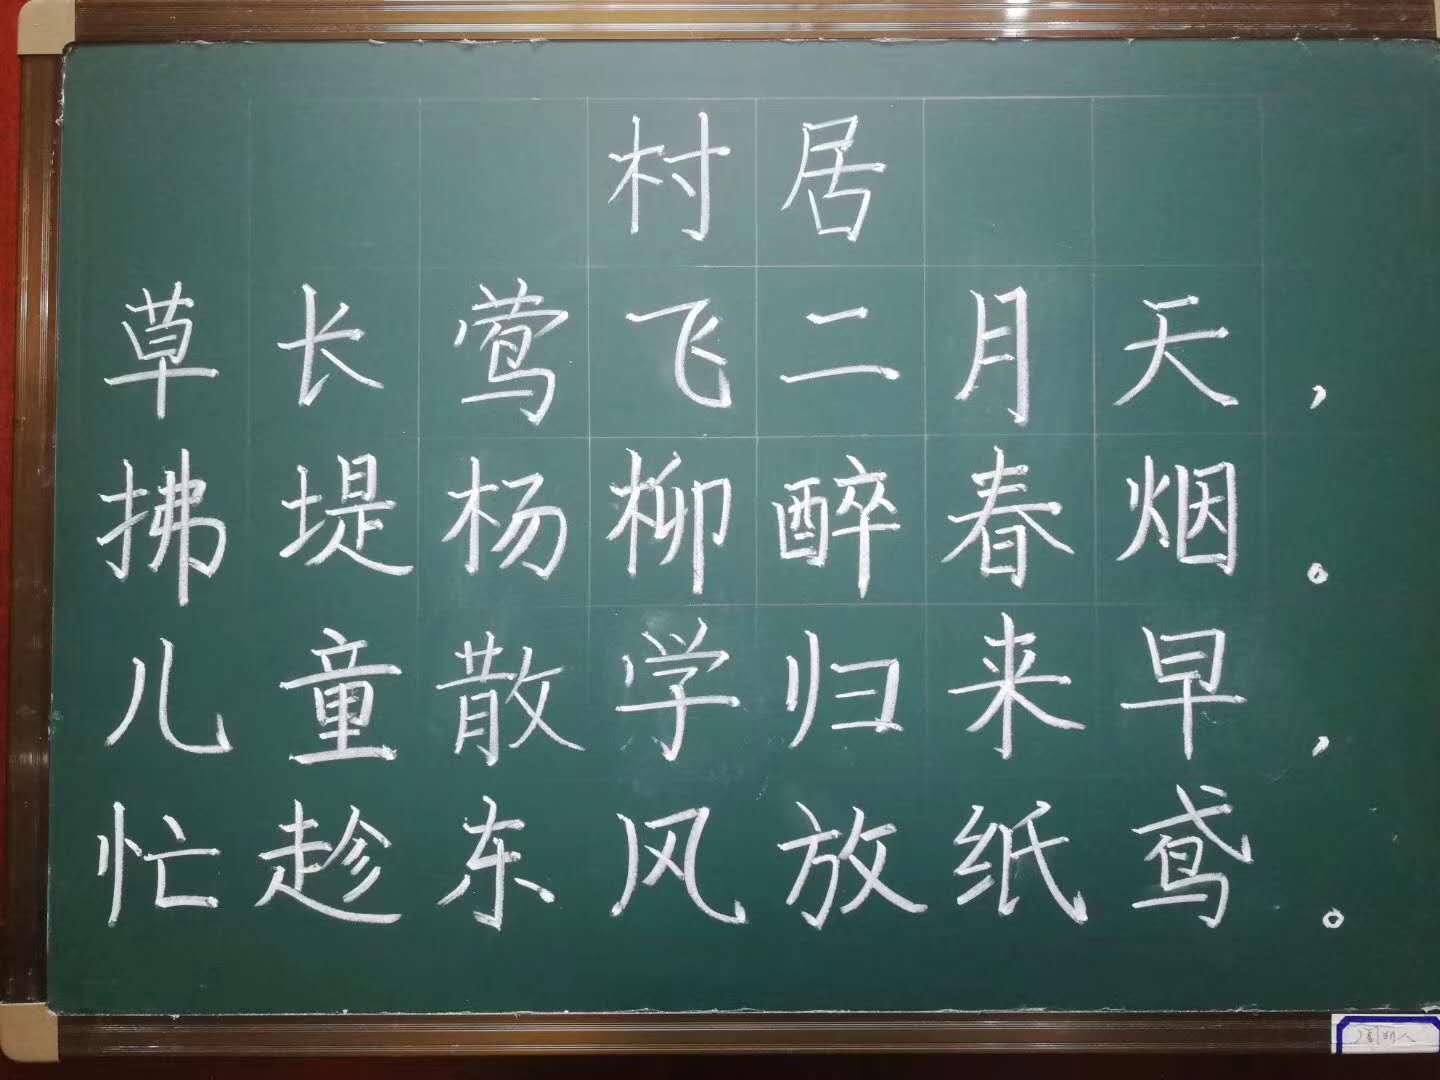 村居
草长莺飞二月天，
拂堤杨柳醉春烟。
儿童散学归来早，
忙趁东风放纸鸢。